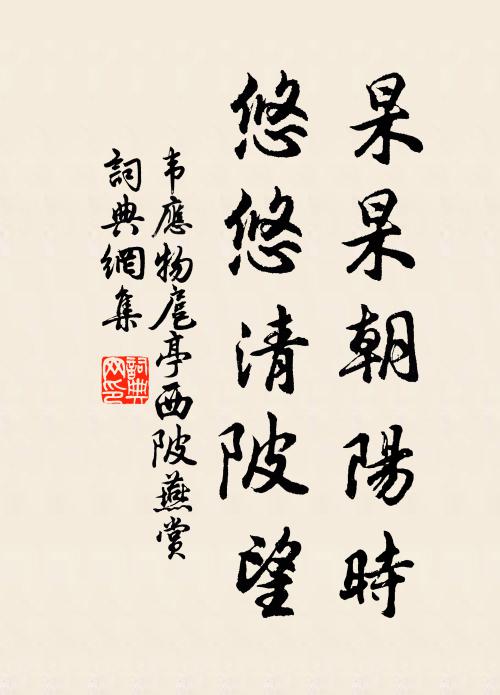 杲杲朝陽時
悠悠清陂望
韦應物扈亭西陂燕赏
詞典網集
詞典網印